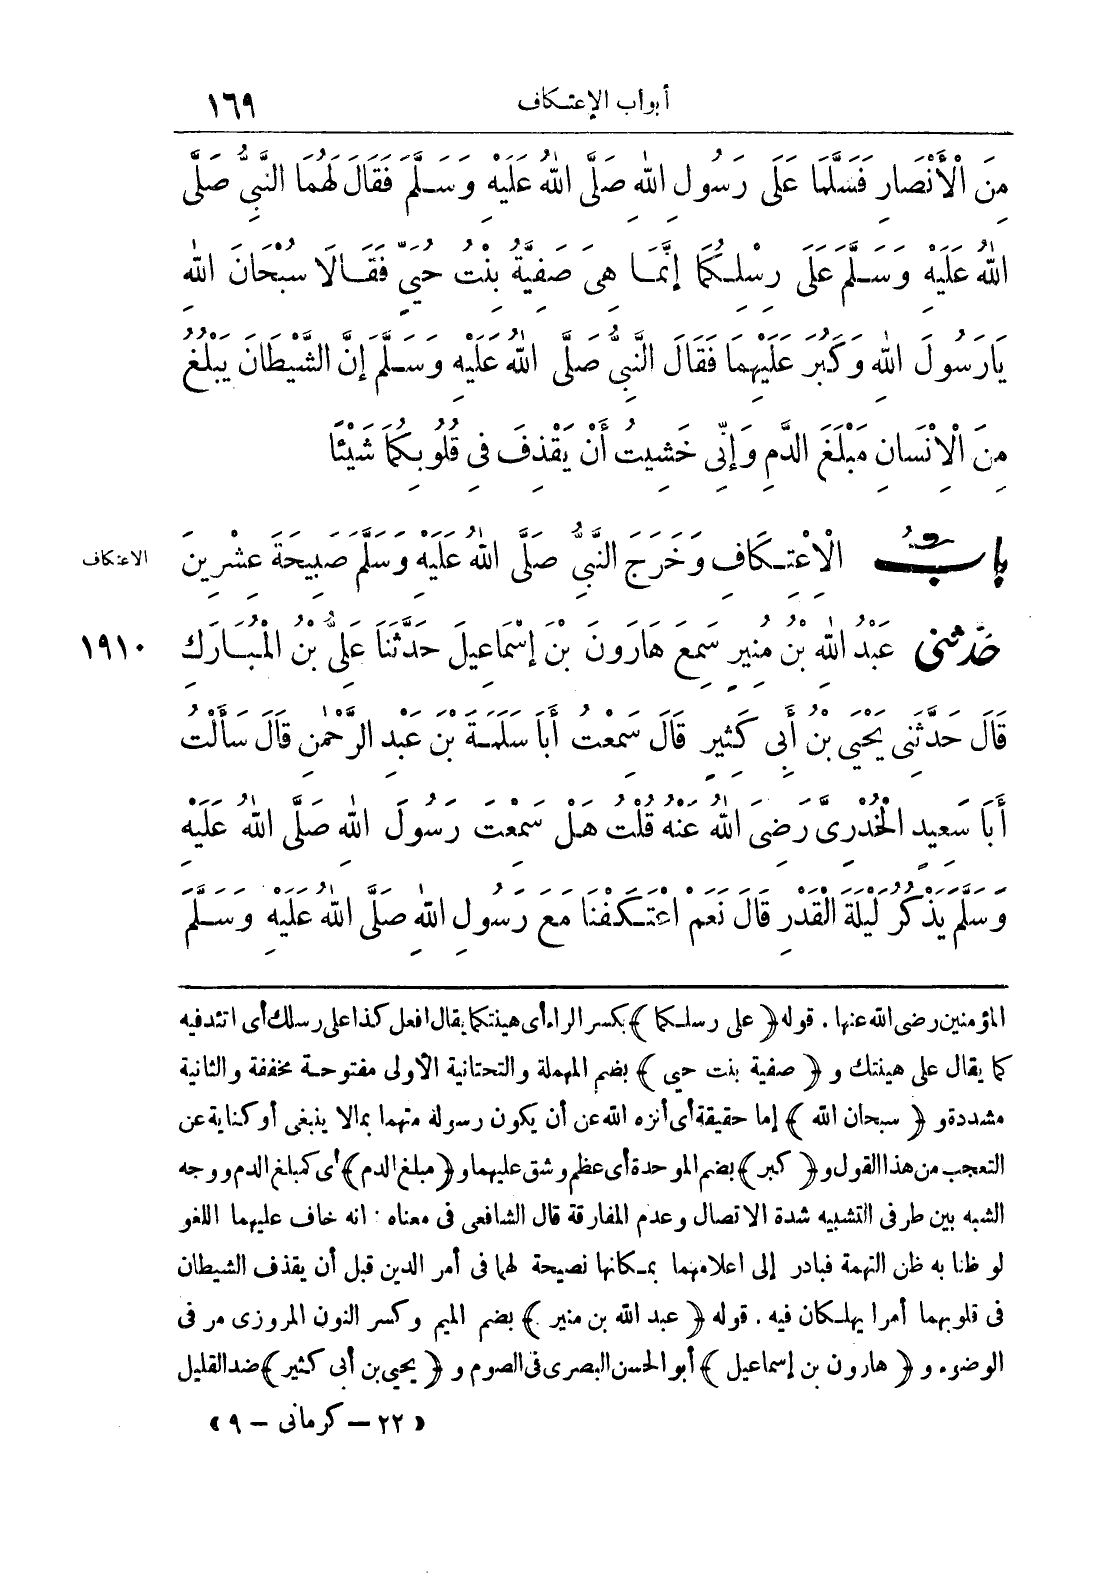 أبواب الإعتكاف ١٦٩
مِنَ الْأَنْصَارِ فَسَلَّمَا عَلَى رَسُولِ اللهِ صَلَّى اللهُ عَلَيْهِ وَسَلَّمَ فَقَالَ لَهُمَا النَّبِيُّ صَلَّى
اللهُ عَلَيْهِ وَسَلَّمَ عَلَى رِسْلِكُمَا إِنَّمَا هِيَ صَفِيَّةُ بِنْتُ حُيَيٍّ فَقَالَا سُبْحَانَ اللهِ
يَارَسُولَ اللهِ وَكَبُرَ عَلَيْهِمَا فَقَالَ النَّبِيُّ صَلَّى اللهُ عَلَيْهِ وَسَلَّمَ إِنَّ الشَّيْطَانَ يَبْلُغُ
مِنَ الْاِنْسَانِ مَبْلَغَ الدَّمِ وَإِنِّي خَشِيتُ أَنْ يَقْذِفَ فِي قُلُوبِكُمَا شَيْئًا
بابُ الْاِعْتِكَافِ وَخَرَجَ النَّبِيُّ صَلَّى اللهُ عَلَيْهِ وَسَلَّمَ صَبِيحَةَ عِشْرِينَ
الاعتكاف
حَدَّثَنِي عَبْدُ اللهِ بْنُ مُنِيرٍ سَمِعَ هَارُونَ بْنَ إِسْمَاعِيلَ حَدَّثَنَا عَلِيُّ بْنُ الْمُبَارَكِ
١٩١٠
قَالَ حَدَّثَنِي يَحْيَى بْنُ أَبِي كَثِيرٍ قَالَ سَمِعْتُ أَبَا سَلَمَةَ بْنَ عَبْدِ الرَّحْمٰنِ قَالَ سَأَلْتُ
أَبَا سَعِيدٍ الْخُدْرِيَّ رَضِيَ اللهُ عَنْهُ قُلْتُ هَلْ سَمِعْتَ رَسُولَ اللهِ صَلَّى اللهُ عَلَيْهِ
وَسَلَّمَ يَذْكُرُ لَيْلَةَ الْقَدْرِ قَالَ نَعَمْ اعْتَكَفْنَا مَعَ رَسُولِ اللهِ صَلَّى اللهُ عَلَيْهِ وَسَلَّمَ
المؤمنين رضى الله عنها . قوله ﴿ على رسلكما ﴾ بكسر الراء أى هينتكما يقال افعل كذا على رسلك أى اتئد فيه
كما يقال على هينتك و ﴿ صفية بنت حيى ﴾ بضم المهملة والتحتانية الأولى مفتوحة مخففة والثانية
مشددة و ﴿ سبحان الله ﴾ إما حقيقة أى أنزه الله عن أن يكون رسوله متهما بما لا ينبغى أو كناية عن
التعجب من هذا القول و ﴿ كبر ﴾ بضم الموحدة أى عظم وشق عليهما و ﴿ مبلغ الدم ﴾ أى كمبلغ الدم ووجه
الشبه بين طرفى التشبيه شدة الاتصال وعدم المفارقة قال الشافعى فى معناه : انه خاف عليهما اللغو
لو ظنا به ظن التهمة فبادر إلى اعلامهما بمكانها نصيحة لهما فى أمر الدين قبل أن يقذف الشيطان
فى قلوبهما أمرا يهلكان فيه . قوله ﴿ عبد الله بن منير ﴾ بضم الميم وكسر النون المروزى مر فى
الوضوء و ﴿ هارون بن إسماعيل ﴾ أبو الحسن البصرى فى الصوم و ﴿ يحيى بن أبى كثير ﴾ ضد القليل
« ٢٢ – كرمانى – ٩ »